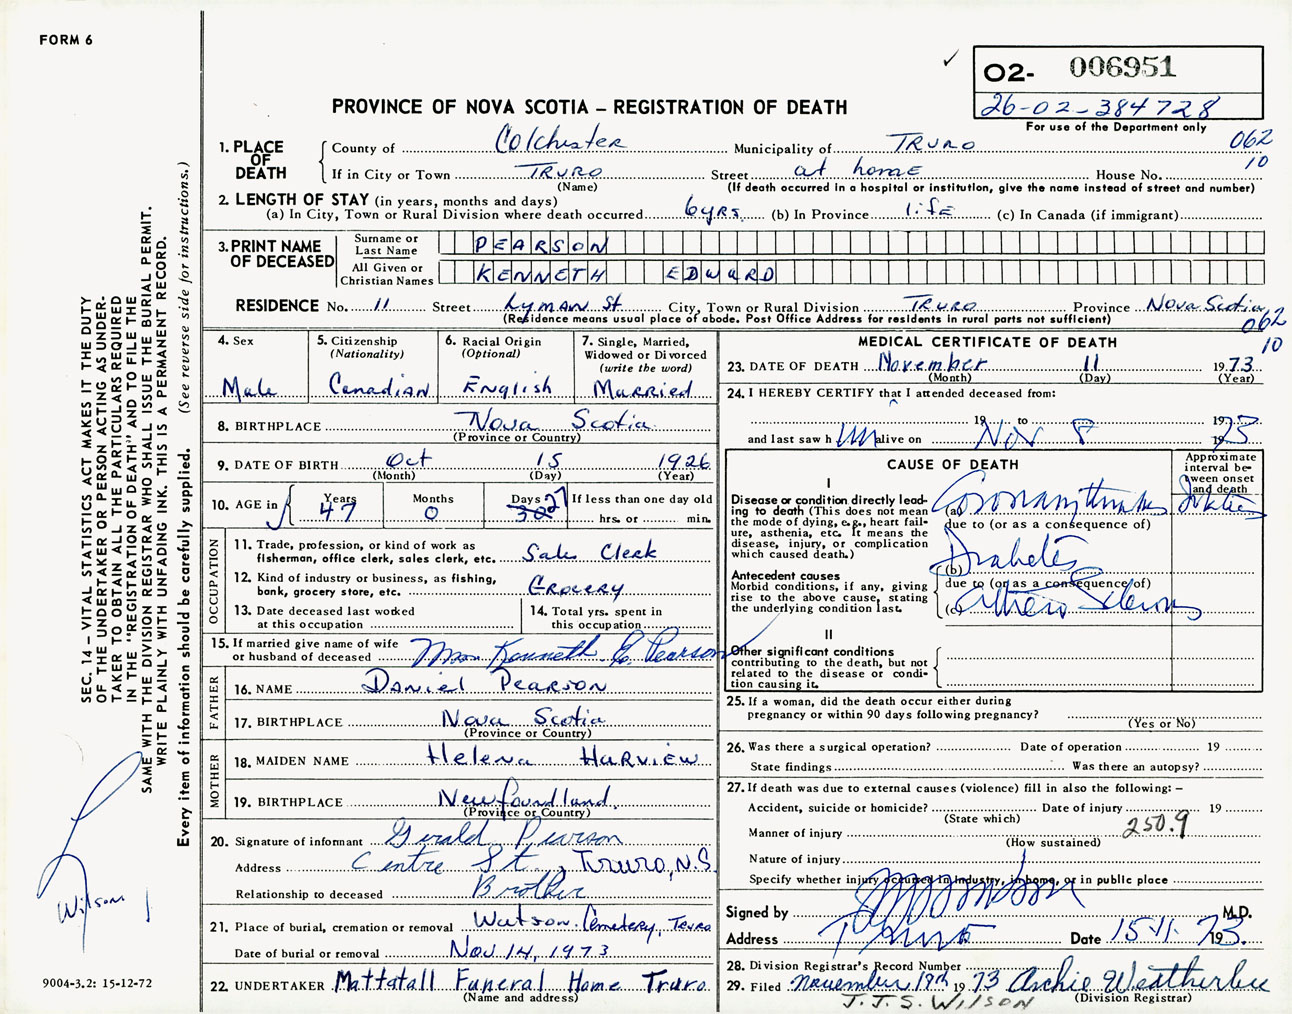 FORM 6
✓
02- 006951
26-02-384728
For use of the Department only
PROVINCE OF NOVA SCOTIA – REGISTRATION OF DEATH
062
10
1. PLACE OF DEATH
County of Colchester Municipality of TRURO
If in City or Town TRURO Street at home House No.
(Name) (If death occurred in a hospital or institution, give the name instead of street and number)
2. LENGTH OF STAY (in years, months and days)
(a) In City, Town or Rural Division where death occurred 6 yrs. (b) In Province life (c) In Canada (if immigrant)
3. PRINT NAME OF DECEASED
Surname or Last Name PEARSON
All Given or Christian Names KENNETH EDWARD
RESIDENCE No. 11 Street Lyman St City, Town or Rural Division TRURO Province Nova Scotia
(Residence means usual place of abode. Post Office Address for residents in rural parts not sufficient)
062
10
4. Sex
Male
5. Citizenship (Nationality)
Canadian
6. Racial Origin (Optional)
English
7. Single, Married, Widowed or Divorced (write the word)
Married
8. BIRTHPLACE Nova Scotia
(Province or Country)
9. DATE OF BIRTH Oct 15 1926
(Month) (Day) (Year)
10. AGE in
Years 47
Months 0
Days 30 27
If less than one day old
hrs. or min.
OCCUPATION
11. Trade, profession, or kind of work as fisherman, office clerk, sales clerk, etc. Sales Clerk
12. Kind of industry or business, as fishing, bank, grocery store, etc. Grocery
13. Date deceased last worked at this occupation
14. Total yrs. spent in this occupation
15. If married give name of wife or husband of deceased Mrs. Kenneth E. Pearson
FATHER
16. NAME Daniel Pearson
17. BIRTHPLACE Nova Scotia
(Province or Country)
MOTHER
18. MAIDEN NAME Helena Harview
19. BIRTHPLACE Newfoundland
(Province or Country)
20. Signature of informant Gerald Pearson
Address Centre St., Truro, N.S.
Relationship to deceased Brother
21. Place of burial, cremation or removal Watson Cemetery, Truro
Date of burial or removal Nov 14, 1973
22. UNDERTAKER Mattatall Funeral Home Truro
(Name and address)
MEDICAL CERTIFICATE OF DEATH
23. DATE OF DEATH November 11 1973
(Month) (Day) (Year)
24. I HEREBY CERTIFY that I attended deceased from:
19 to 19
and last saw him alive on Nov 8 1973
CAUSE OF DEATH
Approximate interval between onset and death
I
Disease or condition directly leading to death (This does not mean the mode of dying, e.g., heart failure, asthenia, etc. It means the disease, injury, or complication which caused death.)
(a) Coronary
due to (or as a consequence of)
(b) Diabetes
Antecedent causes
Morbid conditions, if any, giving rise to the above cause, stating the underlying condition last.
due to (or as a consequence of)
(c) Arterio Sclerosis
II
Other significant conditions contributing to the death, but not related to the disease or condition causing it.
25. If a woman, did the death occur either during pregnancy or within 90 days following pregnancy?
(Yes or No)
26. Was there a surgical operation? Date of operation 19
State findings Was there an autopsy?
27. If death was due to external causes (violence) fill in also the following: –
Accident, suicide or homicide? Date of injury 19
(State which)
250.9
Manner of injury
(How sustained)
Nature of injury
Specify whether injury occurred in Industry, in home, or in public place
Signed by M.D.
Address Truro Date 15-11- 1973.
28. Division Registrar's Record Number
29. Filed November 19th 1973 Archie Weatherbee
(Division Registrar)
J.J.S. WILSON
SEC. 14 – VITAL STATISTICS ACT MAKES IT THE DUTY
OF THE UNDERTAKER OR PERSON ACTING AS UNDER-
TAKER TO OBTAIN ALL THE PARTICULARS REQUIRED
IN THE "REGISTRATION OF DEATH" AND TO FILE THE
SAME WITH THE DIVISION REGISTRAR WHO SHALL ISSUE THE BURIAL PERMIT.
WRITE PLAINLY WITH UNFADING INK. THIS IS A PERMANENT RECORD.
Every item of information should be carefully supplied. (See reverse side for instructions.)
Wilson
9004-3.2: 15-12-72